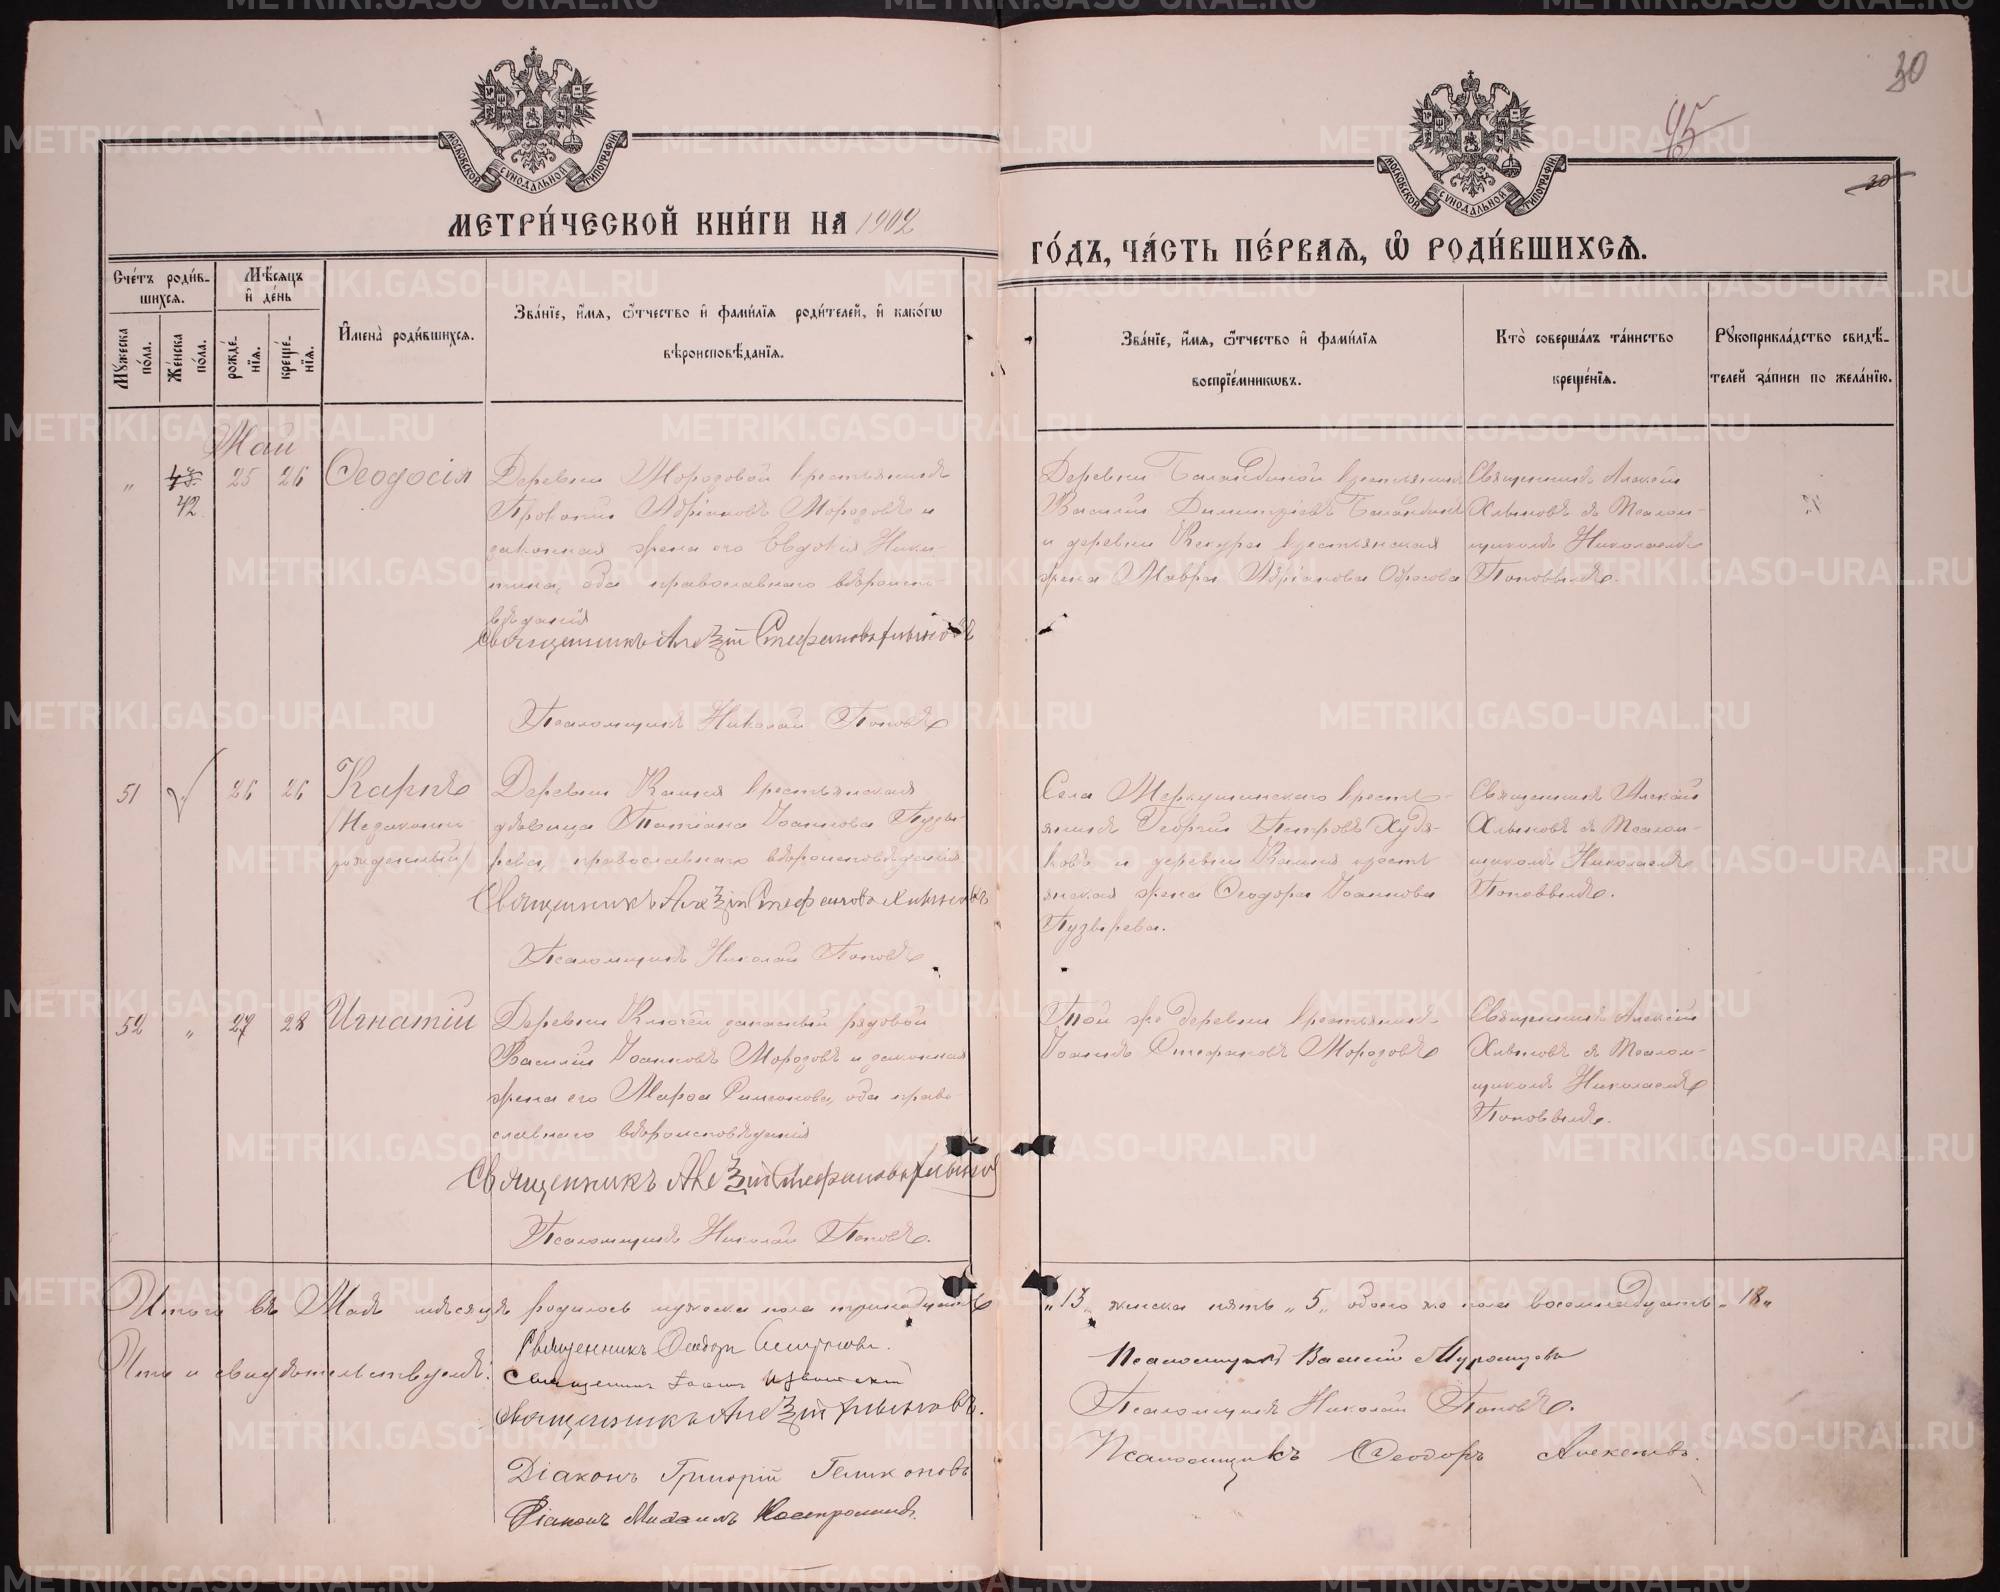 30
95
30
МОСКОВСКОЙ СѴНОДАЛЬНОЙ ТИПОГРАФІИ
МОСКОВСКОЙ СѴНОДАЛЬНОЙ ТИПОГРАФІИ
МЕТРИ́ЧЕСКОЙ КНИ́ГИ НА 1902
ГО́ДЪ, ЧА́СТЬ ПЕ́РВАѦ, Ѽ РОДИ́ВШИХСѦ.
Сче́тъ роди́в-
шихсѧ.
Мꙋ́жеска по́ла.
Же́нска по́ла.
Мѣ́сѧцъ
и҆ де́нь
рожде́-
нїѧ.
креще́-
нїѧ.
И҆мена̀ роди́вшихсѧ.
Зва́нїе, и҆́мѧ, ѻ҆́тчество и҆ фами́лїѧ роди́телей, и҆ како́гѡ
вѣроисповѣ́данїѧ.
Зва́нїе, и҆́мѧ, ѻ҆́тчество и҆ фами́лїѧ
воспрїе́мникѡвъ.
Кто̀ соверша́лъ та́инство
креще́нїѧ.
Рꙋкоприкла́дство свидѣ́-
телей за́писи по жела́нїю.
Май
„ 43. 25 26 Ѳеодосія
42
Деревни Морозовой крестьянинъ
Прокопій Адріановъ Морозовъ и
законная жена его Евдокія Ники-
тина, оба православнаго вѣроиспо-
вѣданія
Священникъ Алексій Стефановъ Хлыновъ
Псаломщикъ Николай Поповъ
Деревни Баландиной крестьянинъ
Василій Димитріевъ Баландинъ
и деревни Кекура крестьянская
жена Мавра Адріанова
Священникъ Алексій
Хлыновъ съ Псалом-
щикомъ Николаемъ
Поповымъ.
51 26 26 Карпъ
/Незаконно
рожденный/
Деревни крестьянская
вдовица Татіана Іоаннова Пузы-
рева, православнаго вѣроисповѣданія
Священникъ Алексій Стефановъ Хлыновъ
Псаломщикъ Николай Поповъ
Села Меркушинскаго кресть-
янинъ Георгій Петровъ Худя-
ковъ и деревни кресть
янская жена Ѳеодора Іоаннова
Пузырева.
Священникъ Алексій
Хлыновъ съ Псалом-
щикомъ Николаемъ
Поповымъ.
52 „ 27 28 Игнатій
Деревни Ключей запасный рядовой
Василій Іоанновъ Морозовъ и законная
жена его Марѳа Симеонова, оба право-
славнаго вѣроисповѣданія
Священникъ Алексій Стефановъ Хлыновъ
Псаломщикъ Николай Поповъ.
Той же деревни крестьянинъ
Іоаннъ Стефановъ Морозовъ
Священникъ Алексій
Хлыновъ съ Псалом-
щикомъ Николаемъ
Поповымъ.
Итого въ Маѣ мѣсяцѣ родилось мужеска пола тринадцать „13„ женска пять „5„ обоего же пола восемнадцать „18„
Что и свидѣтельствуемъ:
Священникъ Ѳеодоръ
Священникъ Іоаннъ
Священникъ Алексій Хлыновъ.
Діаконъ Григорій
Діаконъ Михаилъ Костроминъ.
Псаломщикъ Василій
Псаломщикъ Николай Поповъ.
Псаломщикъ Ѳеодоръ Алексѣевъ.
METRIKI.GASO-URAL.RU